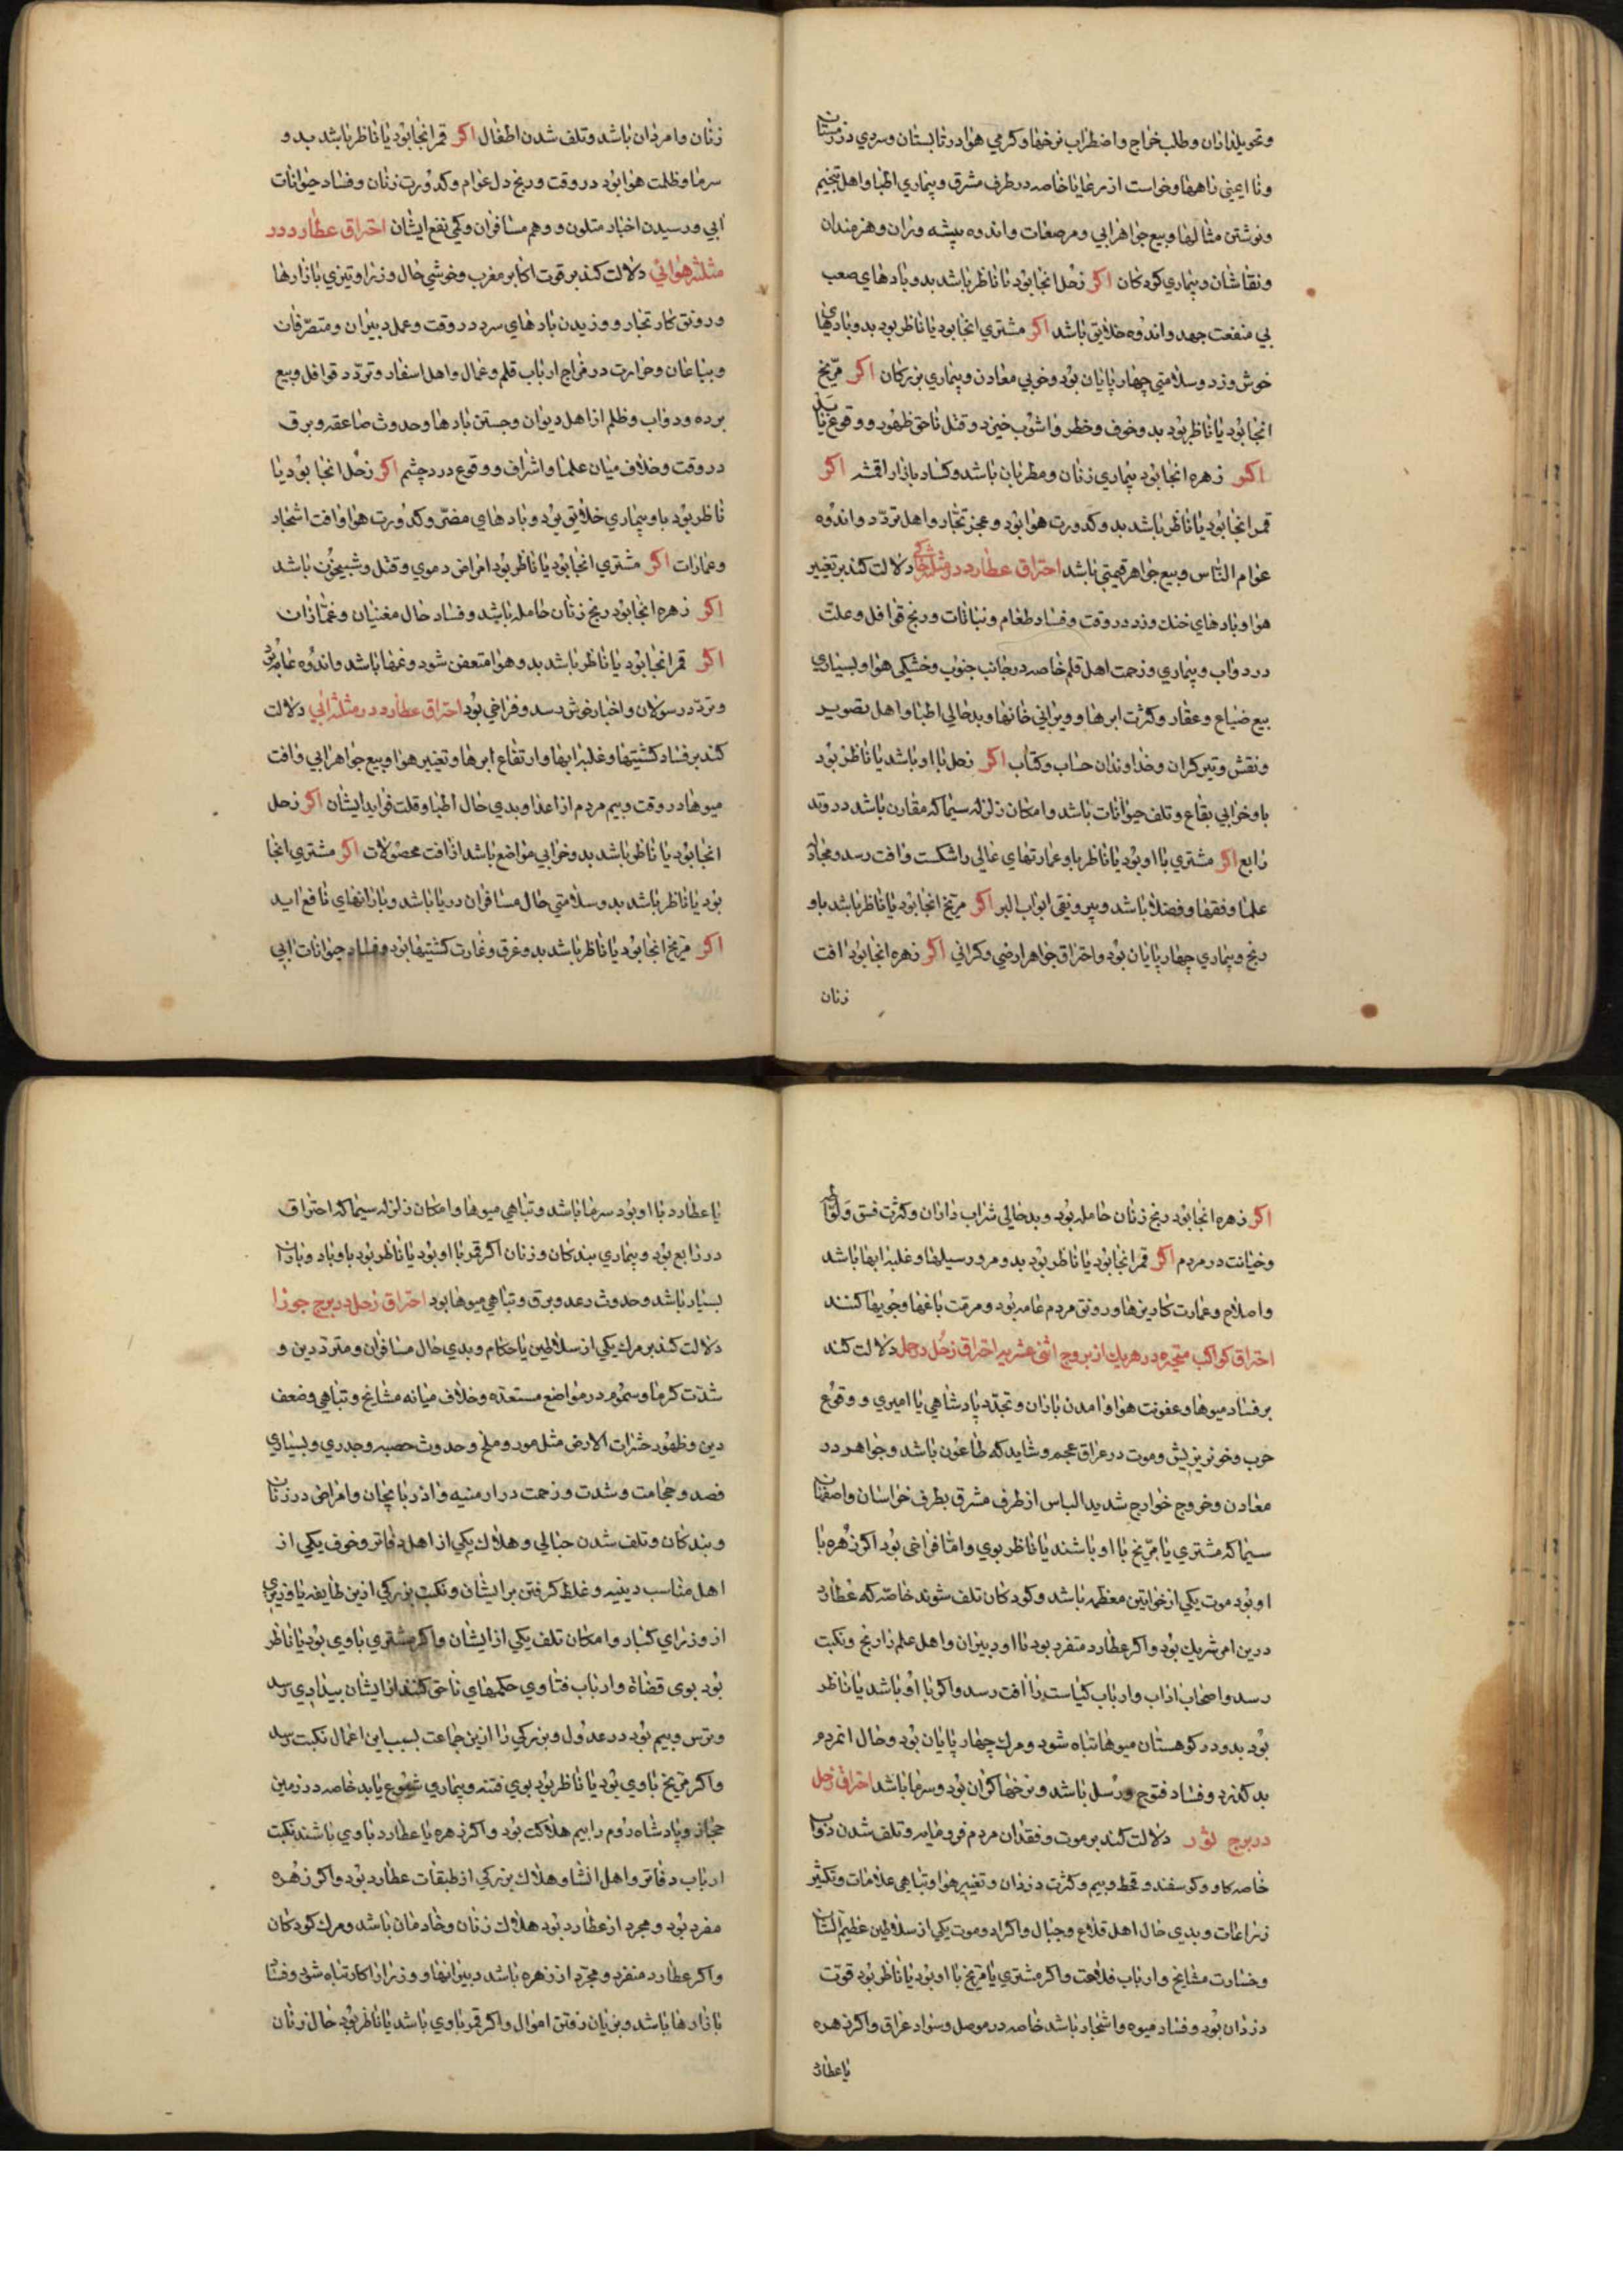 وتحویلداران وطلب خراج واضطراب نرخها وکرمی هوا در تابستان وسردی در زمستان
ونا ایمنی راهها وخواست از رعایا خاصه در طرف مشرق وبیماری اطبا واهل تنجیم
ونوشتن مثالها وبیع جواهر ابی ومرصعات واندوه پیشه وران وهنرمندان
ونقاشان وبیماری کودکان اکر زحل انجا بود یا ناظر باشد بدو بادهای صعب
بی منفعت جهد واندوه خلایق باشد اکر مشتری انجا بود یا ناظر بود بدو بادهای
خوش وزد وسلامتی چهارپایان بود وخوبی معادن وبیماری بزرکان اکر مریخ
انجا بود یا ناظر بود بدو خوف وخطر واشوب خیزد وقتل ناحق ظهور ووقوع یابد
اکر زهره انجا بود بیماری زنان ومطربان باشد وکساد بازار اقمشه اکر
قمر انجا بود یا ناظر باشد بدو کدورت هوا بود وعجز تجار واهل تردد واندوه
عوام الناس وبیع جواهر قیمتی باشد احتراق عطارد در مثلثه خاکی دلالت کند بر تغییر
هوا وبادهای خنک وزد در وقت وفساد طعام ونباتات ورنج قوافل وعلت
در دواب وبیماری وزحمت اهل قلم خاصه در جانب جنوب وخشکی هوا وبسیاری
بیع ضیاع وعقار وکثرت ابرها وویرانی خانها وبدحالی اطبا واهل تصویر
ونقش وتیرکران وخداوندان حساب وکتاب اکر زحل با او باشد یا ناظر بود
باو خرابی بقاع وتلف حیوانات باشد وامکان زلزله سیما که مقارن باشد در وتد
رابع اکر مشتری با او بود یا ناظر باو عمارتهای عالی را شکست وافت رسد ومجادله
علما وفقها وفضلا باشد وبیرونقی ابواب البر اکر مریخ انجا بود یا ناظر باشد باو
رنج وبیماری چهارپایان بود واحتراق جواهر ارضی وکرانی اکر زهره انجا بود افت
زنان
زنان وامردان باشد وتلف شدن اطفال اکر قمر انجا بود یا ناظر باشد بدو
سرما وظلمت هوا بود در وقت ورنج دل عوام وکدورت زنان وفساد حیوانات
ابی ورسیدن اخبار متلون ووهم مسافران وکمی نفع ایشان احتراق عطارد در
مثلثه هوائی دلالت کند بر قوت اکابر مغرب وخوشی حال وزرا وتیزی بازارها
ورونق کار تجار ووزیدن بادهای سرد در وقت وعمل دبیران ومتصرفان
وبیاعان وحرارت در مزاج ارباب قلم وعمال واهل اسفار وتردد قوافل وبیع
برده ودواب وظلم از اهل دیوان وجستن بادها وحدوث صاعقه وبرق
در وقت وخلاف میان علما واشراف ووقوع درد چشم اکر زحل انجا بود یا
ناظر بود باو بیماری خلایق بود وبادهای مضر وکدورت هوا وافت اشجار
وعمارات اکر مشتری انجا بود یا ناظر بود امراض دموی وقتل وشبیخون باشد
اکر زهره انجا بود رنج زنان حامله باشد وفساد حال مغنیان وغمازان
اکر قمر انجا بود یا ناظر باشد بدو هوا متعفن شود وغمها باشد واندوه عامه
وتردد رسولان واخبار خوش رسد وفراخی بود احتراق عطارد در مثلثه ابی دلالت
کند بر فساد کشتیها وغلبه ابها وارتفاع ابرها وتغییر هوا وبیع جواهر ابی وافت
میوها در وقت وبیم مردم از اعدا وبدی حال اطبا وقلت فواید ایشان اکر زحل
انجا بود یا ناظر باشد بدو خرابی مواضع باشد از افت محصولات اکر مشتری انجا
بود یا ناظر باشد بدو سلامتی حال مسافران دریا باشد وبارانهای نافع اید
اکر مریخ انجا بود یا ناظر باشد بدو غرق وغارت کشتیها بود وفساد حیوانات ابی
اکر زهره انجا بود رنج زنان حامله بود وبدحالی شراب داران وکثرت فسق ولواطه
وخیانت در مردم اکر قمر انجا بود یا ناظر بود بدو مرور سیلها وغلبه ابها باشد
واصلاح وعمارت کاریزها ورونق مردم عامه بود ومرمت باغها وجویها کنند
احتراق کواکب متحیره در هر یک از بروج اثنی عشریه احتراق زحل در حمل دلالت کند
بر فساد میوها وعفونت هوا وامدن باران وتجدد پادشاهی یا امیری ووقوع
حرب وخونریزیش وموت در عراق عجم وشاید که طاعون باشد وجواهر در
معادن وخروج خوارج شدید الباس از طرف مشرق بطرف خراسان واصفهان
سیما که مشتری یا مریخ با او باشند یا ناظر بوی واما فراخی بود اکر زهره با
او بود موت یکی از خواتین معظمه باشد وکودکان تلف شوند خاصه که عطارد
درین امر شریک بود واکر عطارد منفرد بود با او دبیران واهل علم را رنج ونکبت
رسد واصحاب اداب وارباب کیاست را افت رسد واکر با او باشد یا ناظر
بود بدو در کوهستان میوها تباه شود ومرک چهارپایان بود وحال انمردم
بد کذرد وفساد فتوح ورسل باشد ونرخها کران بود وسرما باشد احتراق زحل
در برج ثور دلالت کند بر موت وفقدان مردم فرومایه وتلف شدن دواب
خاصه کاو وکوسفند وقحط وبیم وکثرت دزدان وتغییر هوا وتباهی علامات وتکثیر
زراعات وبدی حال اهل قلاع وجبال واکراد وموت یکی از سلاطین عظیم الشان
وخسارت مشایخ وارباب فلاحت واکر مشتری یا مریخ با او بود یا ناظر بود قوت
دزدان بود وفساد میوه واشجار باشد خاصه در موصل وسواد عراق واکر زهره
یا عطارد
یا عطارد با او بود سرما باشد وتباهی میوها وامکان زلزله سیما که احتراق
در رابع بود وبیماری بندکان وزنان اکر قمر با او بود یا ناظر بود باو باد وباران
بسیار باشد وحدوث رعد وبرق وتباهی میوها بود احتراق زحل در برج جوزا
دلالت کند بر مرک یکی از سلاطین یا حکام وبدی حال مسافران ومترددین و
شدت کرما وسموم در مواضع مستعده وخلاف میانه مشایخ وتباهی وضعف
دین وظهور حشرات الارض مثل مور وملخ وحدوث حصبه وجدری وبسیاری
فصد وحجامت وشدت وزحمت در ارمنیه واذربایجان وامراض در زنان
وبندکان وتلف شدن حبالی وهلاک یکی از اهل دفاتر وخوف یکی از
اهل مناسب دینیه وغلظ کرفتن بر ایشان ونکبت بزرکی ازین طایفه یا وزیری
از وزرای کبار وامکان تلف یکی از ایشان واکر مشتری باوی بود یا ناظر
بود بوی قضاة وارباب فتاوی حکمهای ناحق کنند از ایشان بیدادی رسد
وترس وبیم بود در عدول وبزرکی را ازین جماعت بسبب این اعمال نکبت رسد
واکر مریخ باوی بود یا ناظر بود بوی فتنه وبیماری شیوع یابد خاصه در زمین
حجاز وپادشاه روم را بیم هلاکت بود واکر زهره یا عطارد باوی باشند نکبت
ارباب دفاتر واهل انشا وهلاک بزرکی از طبقات عطارد بود واکر زهره
مفرد بود ومجرد از عطارد بود هلاک زنان وخادمان باشد ومرک کودکان
واکر عطارد منفرد ومجرد از زهره باشد دبیرانها ووزرا را کار تباه شود وفساد
بازارها باشد وبزیان رفتن اموال واکر قمر باوی باشد یا ناظر بود حال زنان